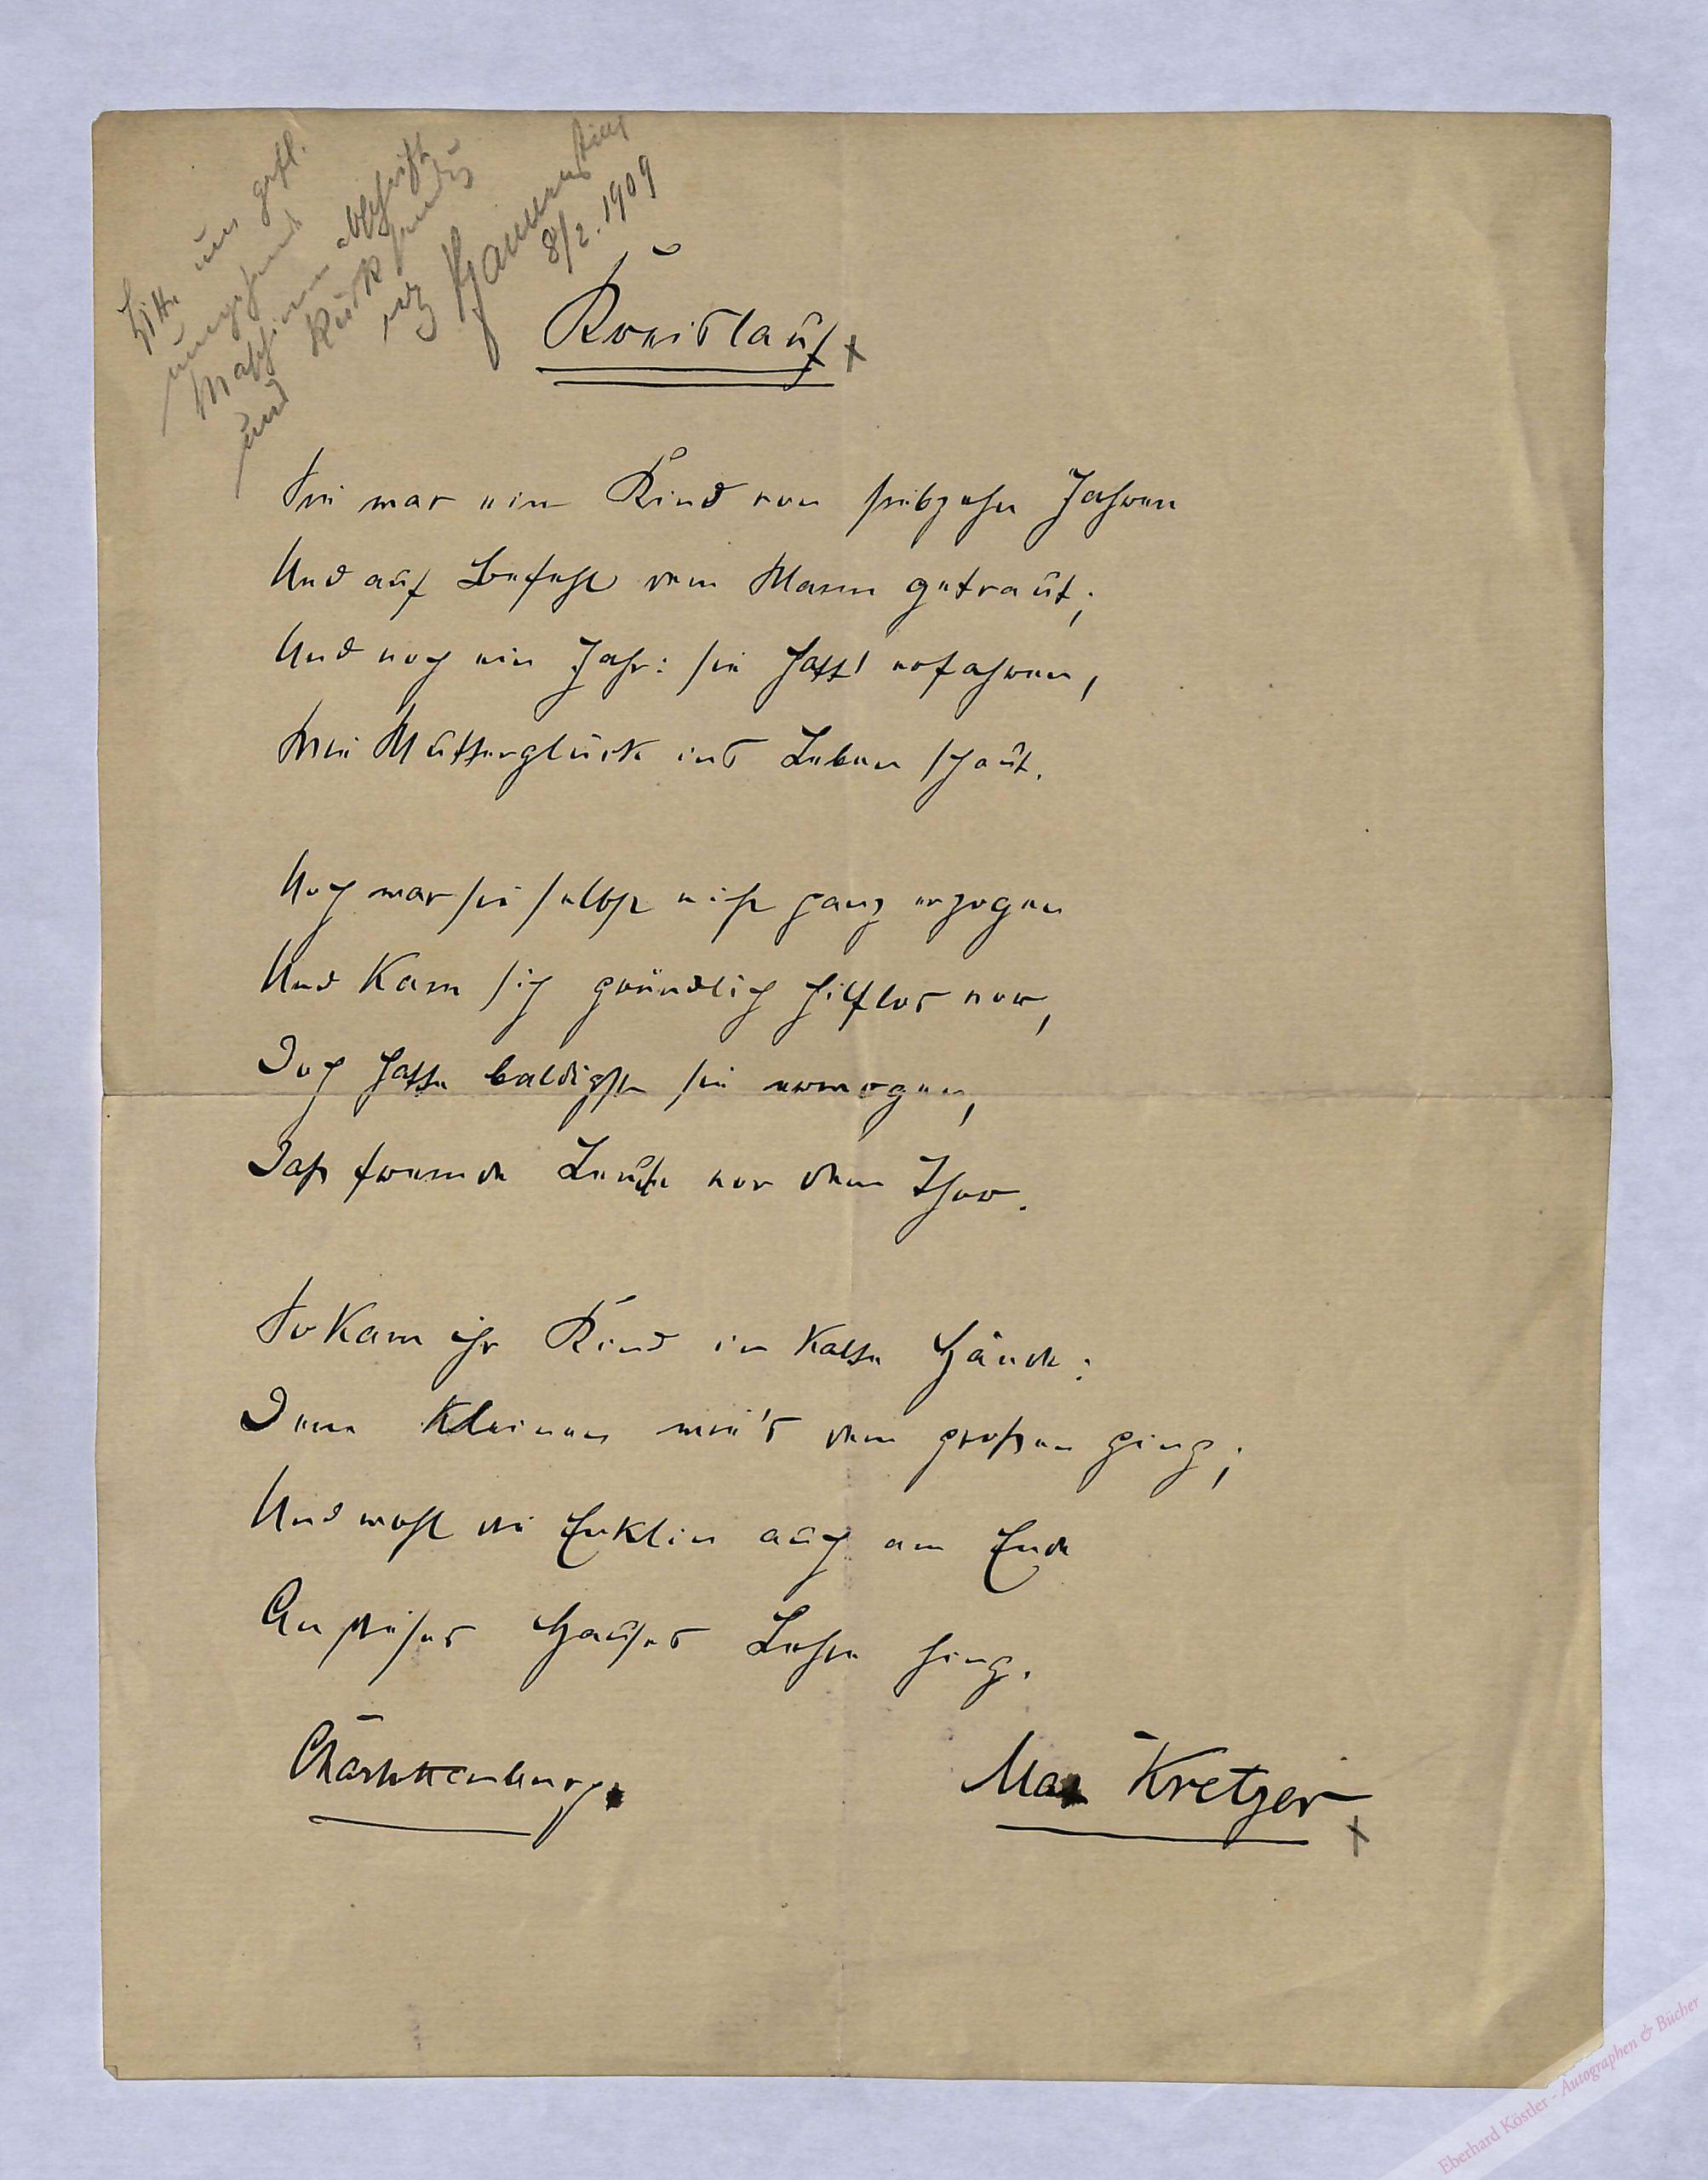 Bitte um gefl.
umgehend
Maschinenabschrift
und
8/2. 1909
Kreislauf
Sie war ein Kind von siebzehn Jahren
Und auf Befehl dem Mann getraut;
Und noch ein Jahr: sie hatt' erfahren,
Wie Mutterglück ins Leben schaut.
Noch war sie selbst nicht ganz erzogen
Und kam sich gründlich hilflos vor,
Doch hatte baldigst sie erwogen,
Daß fremde Leute vor dem Thor.
So kam ihr Kind in kalte Hände:
Dem Kleinen wie's dem großen ging;
Und wohl die Enklin auch am Ende
An dieses Hauses hing.
Charlottenburg.
Max Kretzer
Eberhard Köstler - Autographen & Bücher